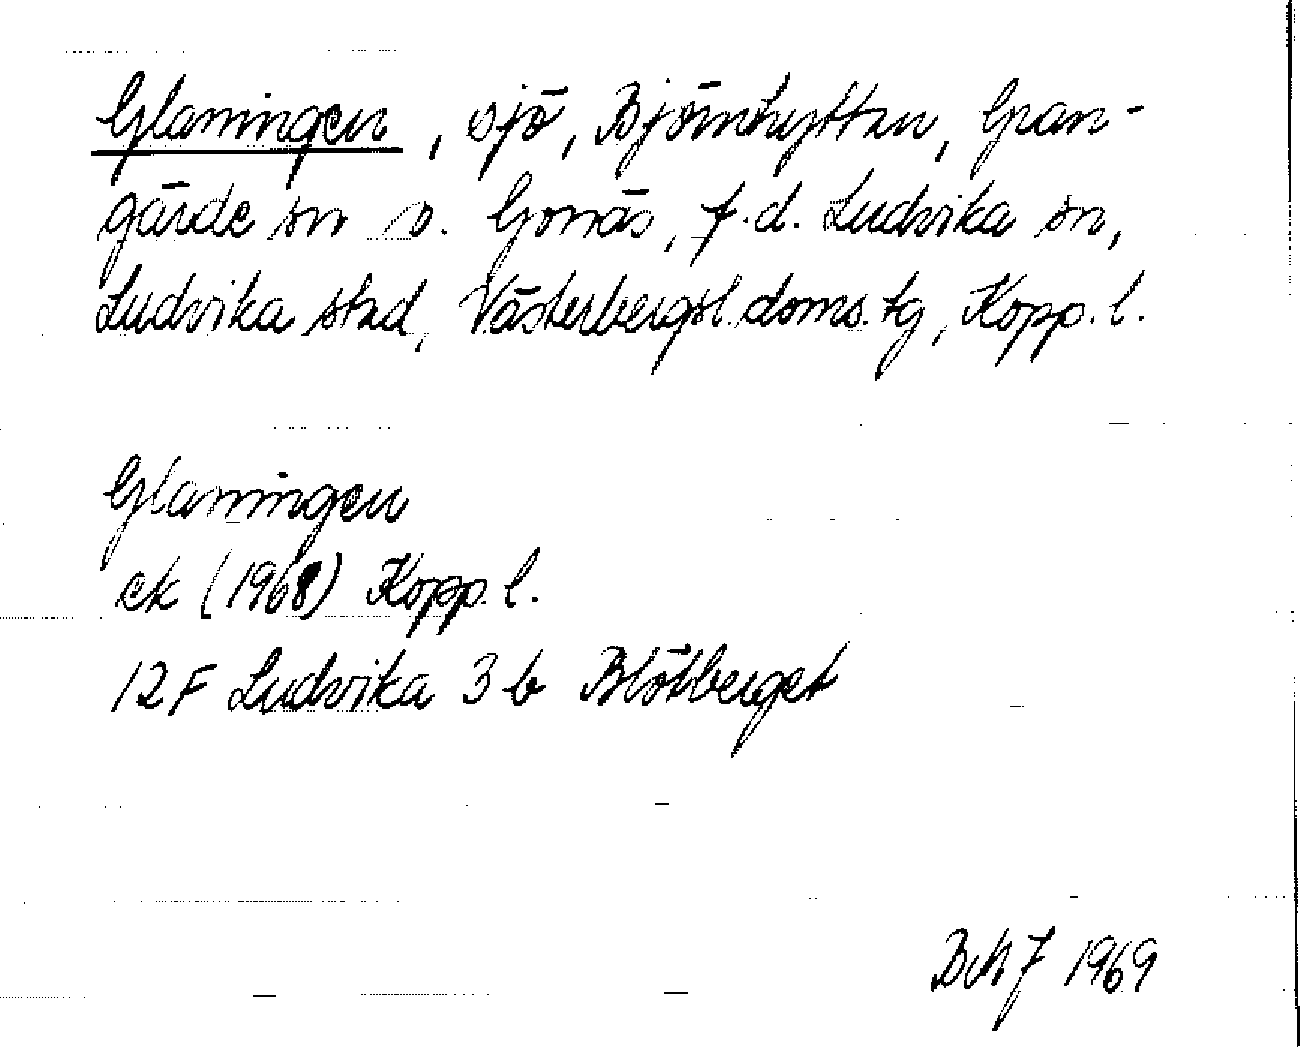 Glaningen, sjö, Björnhyttan, Gran-
gärde sn o. Gonäs, f.d. Ludvika sn,
Ludvika stad, Västerbergsl. doms. tg, Kopp. l.
Glaningen
ek (1968) Kopp. l.
12F Ludvika 3 b Blötberget
1969